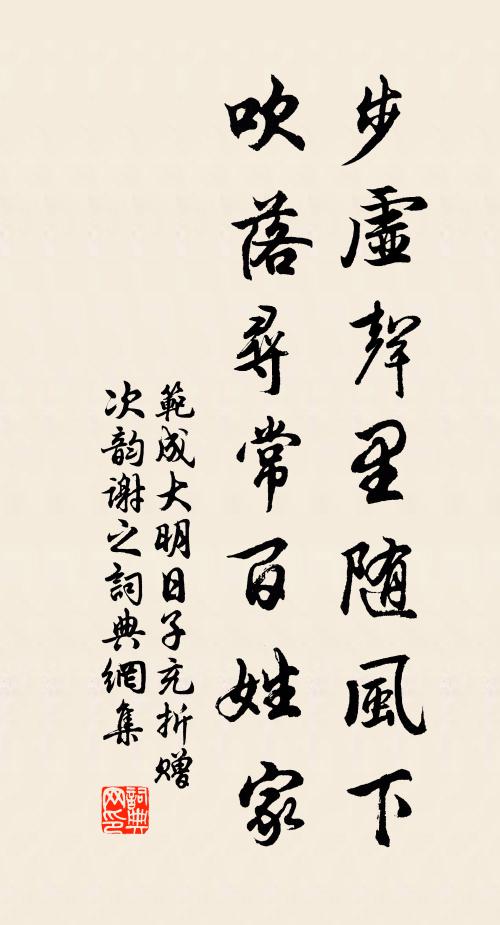 步虛聲里随風下
吹落尋常百姓家
範成大明日子充折贈
次韵谢之詞典網集
詞典网印